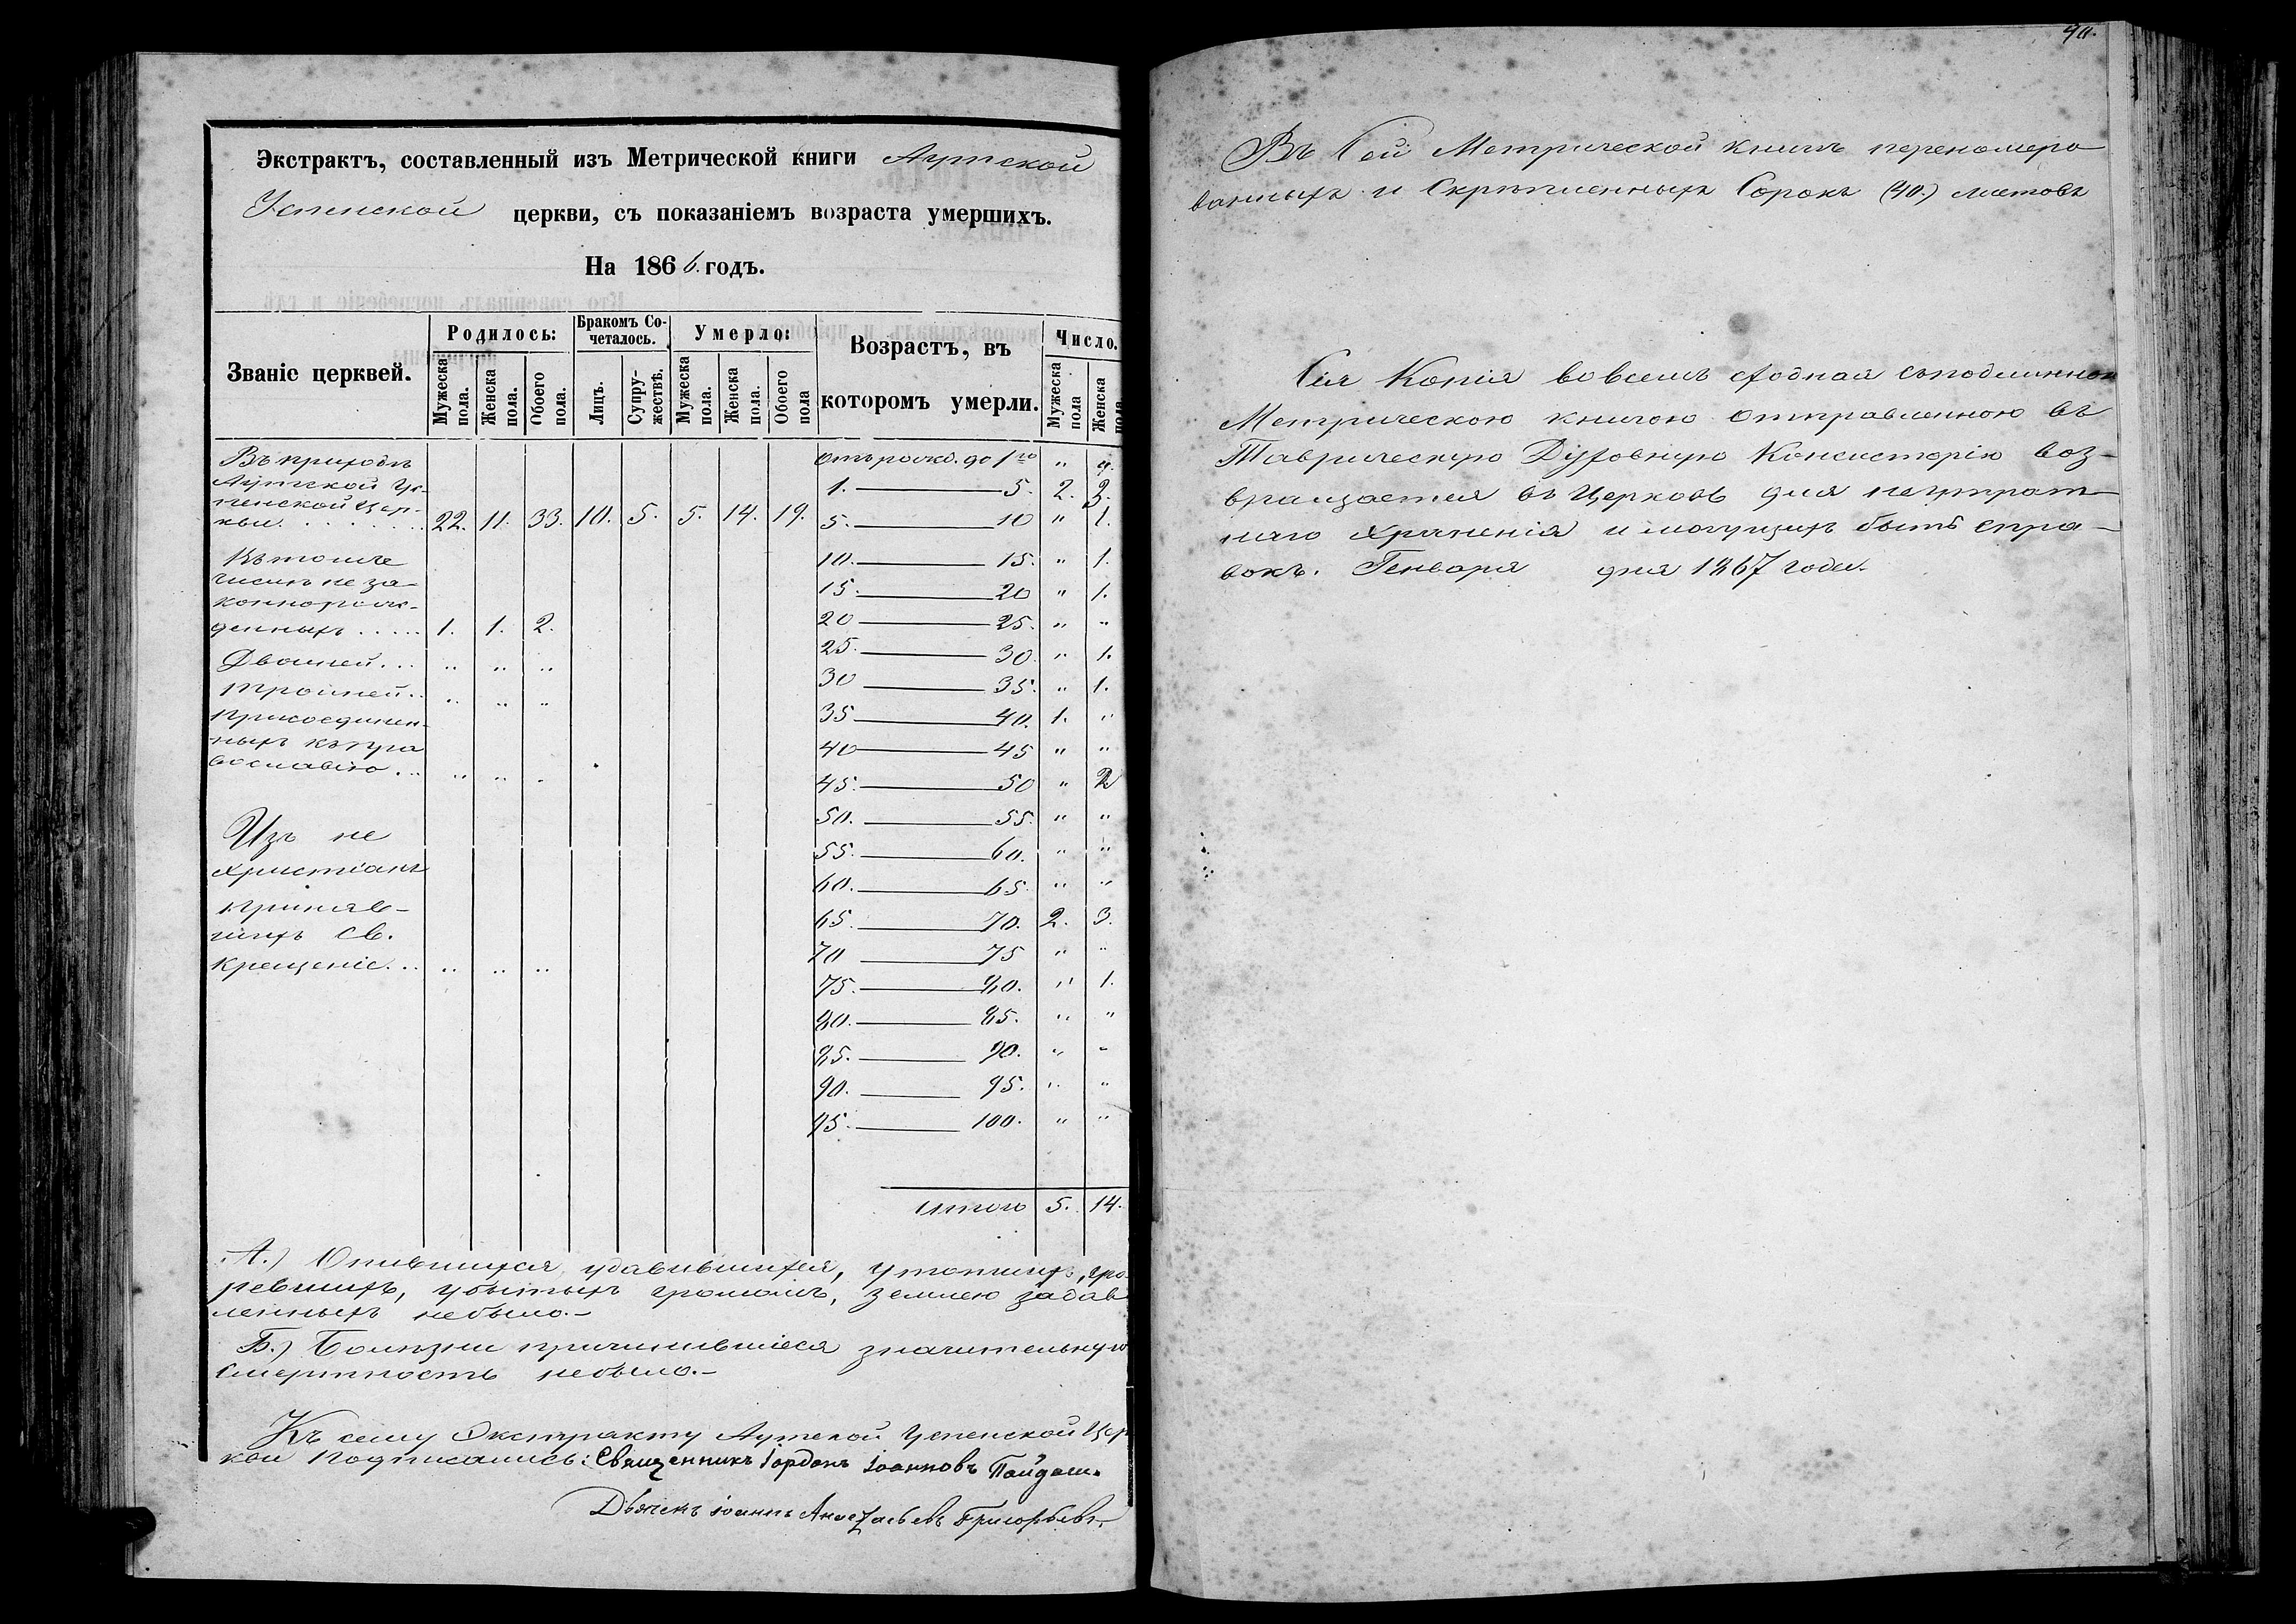 Экстрактъ, составленный изъ Метрической книги Аутской
Успенской церкви, съ показаніемъ возраста умершихъ.
На 1866. годъ.
Званіе церквей. Родилось: Бракомъ Со-четалось. Умерло: Возрастъ, въ которомъ умерли. Число.
Мужеска пола. Женска пола. Обоего пола. Лицъ. Супру-жествъ. Мужеска пола. Женска пола. Обоего пола Мужеска пола Женска пола
Въ приходѣ
Аутской Ус-
пенской Цер-
кви. 22. 11. 33. 10. 5. 5. 14. 19.
Въ томъ
числѣ не за-
коннорож-
денныхъ ..... 1. 1. 2.
Двоиней... " " "
Тройней.. " " "
Присоединен-
ныхъ къ пра
вославію... " " "
Изъ не
христіанъ
приняв-
шихъ Св.
Крещеніе... " " "
Отъ рожд. до 1го "
1. — 5. 2. 3.
5. — 10 " 1.
10. — 15. " 1.
15. — 20 " 1.
20 — 25. " "
25. — 30. " 1.
30 — 35. " 1.
35 — 40. 1. "
40 — 45 " "
45. — 50 " 2
50. — 55. " "
55. — 60. " "
60. — 65. " "
65. — 70. 2. 3.
70 — 75 " "
75. — 80. " 1.
80. — 85. " "
85. — 90. " "
90. — 95. " "
95. — 100. " "
Итого 5. 14.
А.) Опившихся, удавившихся, утопшихъ, уго-
ревшихъ, убитыхъ громомъ, землею задав
ленныхъ небыло.-
Б.) Болѣзни причинившіеся значительную
смертность небыло.-
Къ сему Экстракту Аутской Успенской Цер
кви подписались: Священникъ Іорданъ Іоанновъ
Дьячекъ Іоаннъ Григорьевъ
40.
Въ Сей Метрической книгѣ переномеро
ванныхъ и Скрѣпленныхъ Сорокъ (40.) листовъ
Сія Копія вовсемъ сходная съподлинною
Метрическою книгою отправленною въ
Таврическую Духовную Консисторію воз-
вращается въ Церковь для неутрат-
наго храненія и могущихъ быть спра-
вокъ. Генваря дня 1867 года.